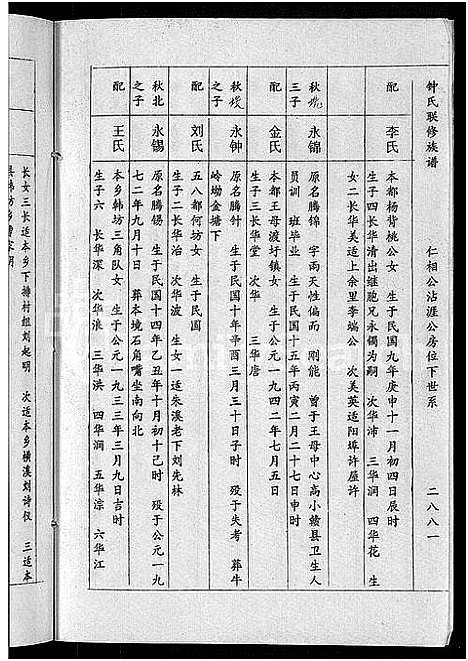 钟氏联修族谱 仁相公沾涯公房位下世系 二八八一
配 李氏
本都杨背桃公女 生于民国九年庚申十一月初四日辰时
生子四长华清出继胞兄永镯为嗣 次华沛 三华润 四华花 生
女二长华美适上余里李端公 次美英适阳埠许屋许
秋 三子 永锦
原名腾锦 字雨天性偏而 刚能 曾于王母中心高小赣县卫生人
员训 班毕业 生于民国十五年丙寅二月二十七日申时
配 金氏
本都王母渡圩镇女 生于公元一九四二年七月五日
生子二长华堂 三华唐
秋 之子 永钟
原名腾针 生于民国十年辛酉三月三十日子时 殁于失考 葬牛
岭坳金塘下
配 刘氏
五八都何坊女 生于民国
生子二长华治 次华波 生女一适朱溪老下刘先林
秋北 之子 永锡
原名腾锡 生于民国十四年乙丑年十月初十己时 殁于公元一九
七二年九月十日 葬本境石角嘴坐南向北
配 王氏
本乡韩坊三角队女 生于公元一九三三年三月九日吉时
生子六 长华深 次华浪 三华洪 四华涧 五华淙 六华江
长女三长适本乡下塘村组刘起明 次适本乡横溪刘诗权 三适本